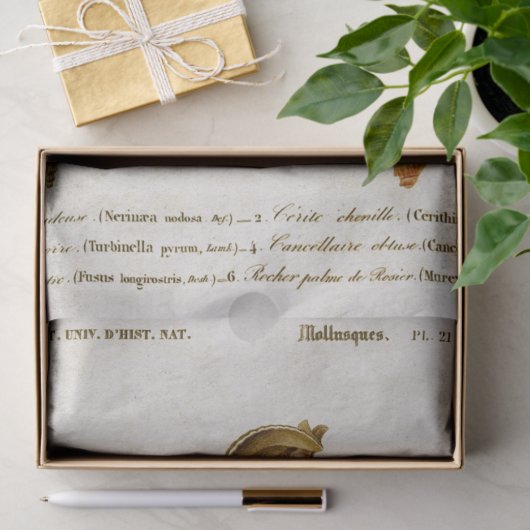 (Nerinæa nodosa Def.) — 2. Cérite chenille. (Cerithi
(Turbinella pyrum, Lamk.) — 4. Cancellaire obtuse. (Canc
(Fusus longirostris, Desh.) — 6. Rocher palme de Rosier. (Mure
T. UNIV. D'HIST. NAT. Mollusques. Pl. 21